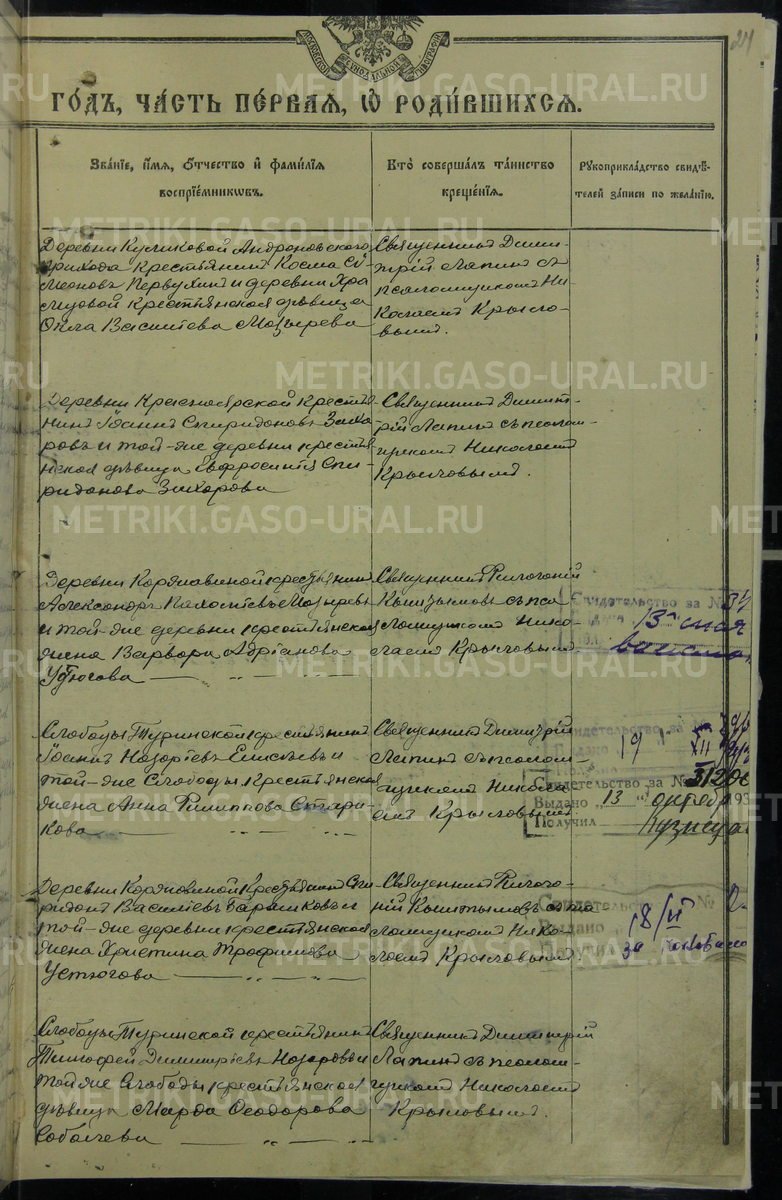 24
ГОДЪ, ЧАСТЬ ПЕРВАЯ, Ѡ РОДИВШИХСЯ.
Званіе, имя, отчество и фамилія воспріемниковъ.
Кто совершалъ таинство крещенія.
Рукоприкладство свидѣтелей записи по желанію.
Деревни Куликовой Андроновскаго
прихода крестьянинъ Косма Си-
меоновъ Первухинъ и деревни
крестьянская дѣвица
Васильева Мозырева
Священникъ Дими-
трій Лапинъ съ
псаломщикомъ Ни-
колаемъ Крыло-
вымъ.
Деревни Красноярской крестья-
нинъ Іоаннъ Спиридоновъ Заха-
ровъ и той-же деревни крестья-
нская дѣвица Евфросинія Спи-
ридонова Захарова
Священникъ Димит-
рій Лапинъ съ псалом-
щикомъ Николаемъ
Крыловымъ.
Деревни Коржавиной крестьянинъ
Александръ Мозыревъ
и той-же деревни крестьянская
жена Варвара Адріанова
Устюгова
Священникъ Филогоній
Кыштымовъ съ пса-
ломщикомъ Нико-
лаемъ Крыловымъ
Свидетельство за №
13
Слободы Туринской крестьянинъ
Іоаннъ Назаріевъ Елисѣевъ и
той-же Слободы крестьянская
жена Анна Филиппова Стари-
кова
Священникъ Димитрій
Лапинъ съ псалом-
щикомъ Никола-
емъ Крыловымъ
19 XII
Свидетельство за №
Выдано 13 октября 193
Получил
Деревни Коржавиной крестьянинъ Спи-
ридонъ Васильевъ Барашковъ и
той-же деревни крестьянская
жена Христина Трофимова
Устюгова
Священникъ Филого-
ній Кыштымовъ съ пса-
ломщикомъ Нико-
лаемъ Крыловымъ
Свидетельство №
Выдано 18/VI
Получил за
Слободы Туринской крестьянинъ
Тимофей Димитріевъ Назаровъ и
той же Слободы крестьянская
дѣвица Марфа Ѳеодорова
Соболева
Священникъ Димитрій
Лапинъ съ псалом-
щикомъ Николаемъ
Крыловымъ.
METRIKI.GASO-URAL.RU